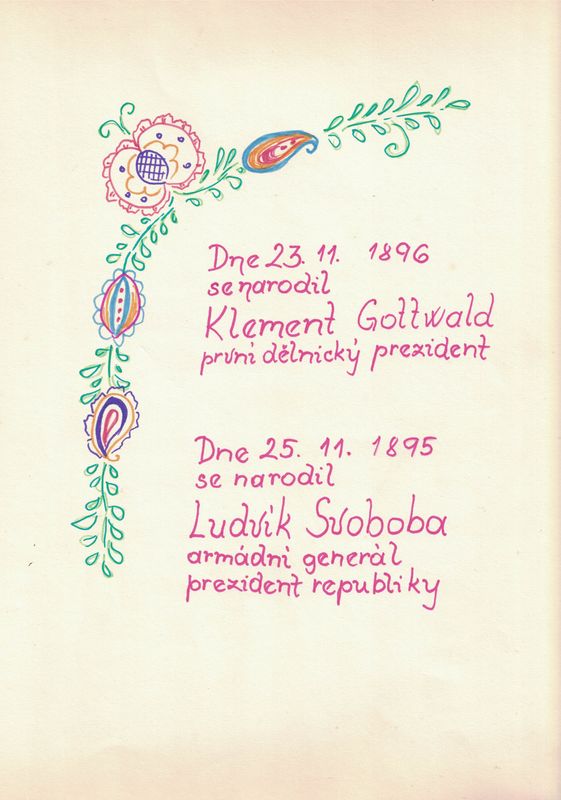 Dne 23. 11. 1896
se narodil
Klement Gottwald
první dělnický prezident
Dne 25. 11. 1895
se narodil
Ludvík Svoboba
armádní generál
prezident republiky